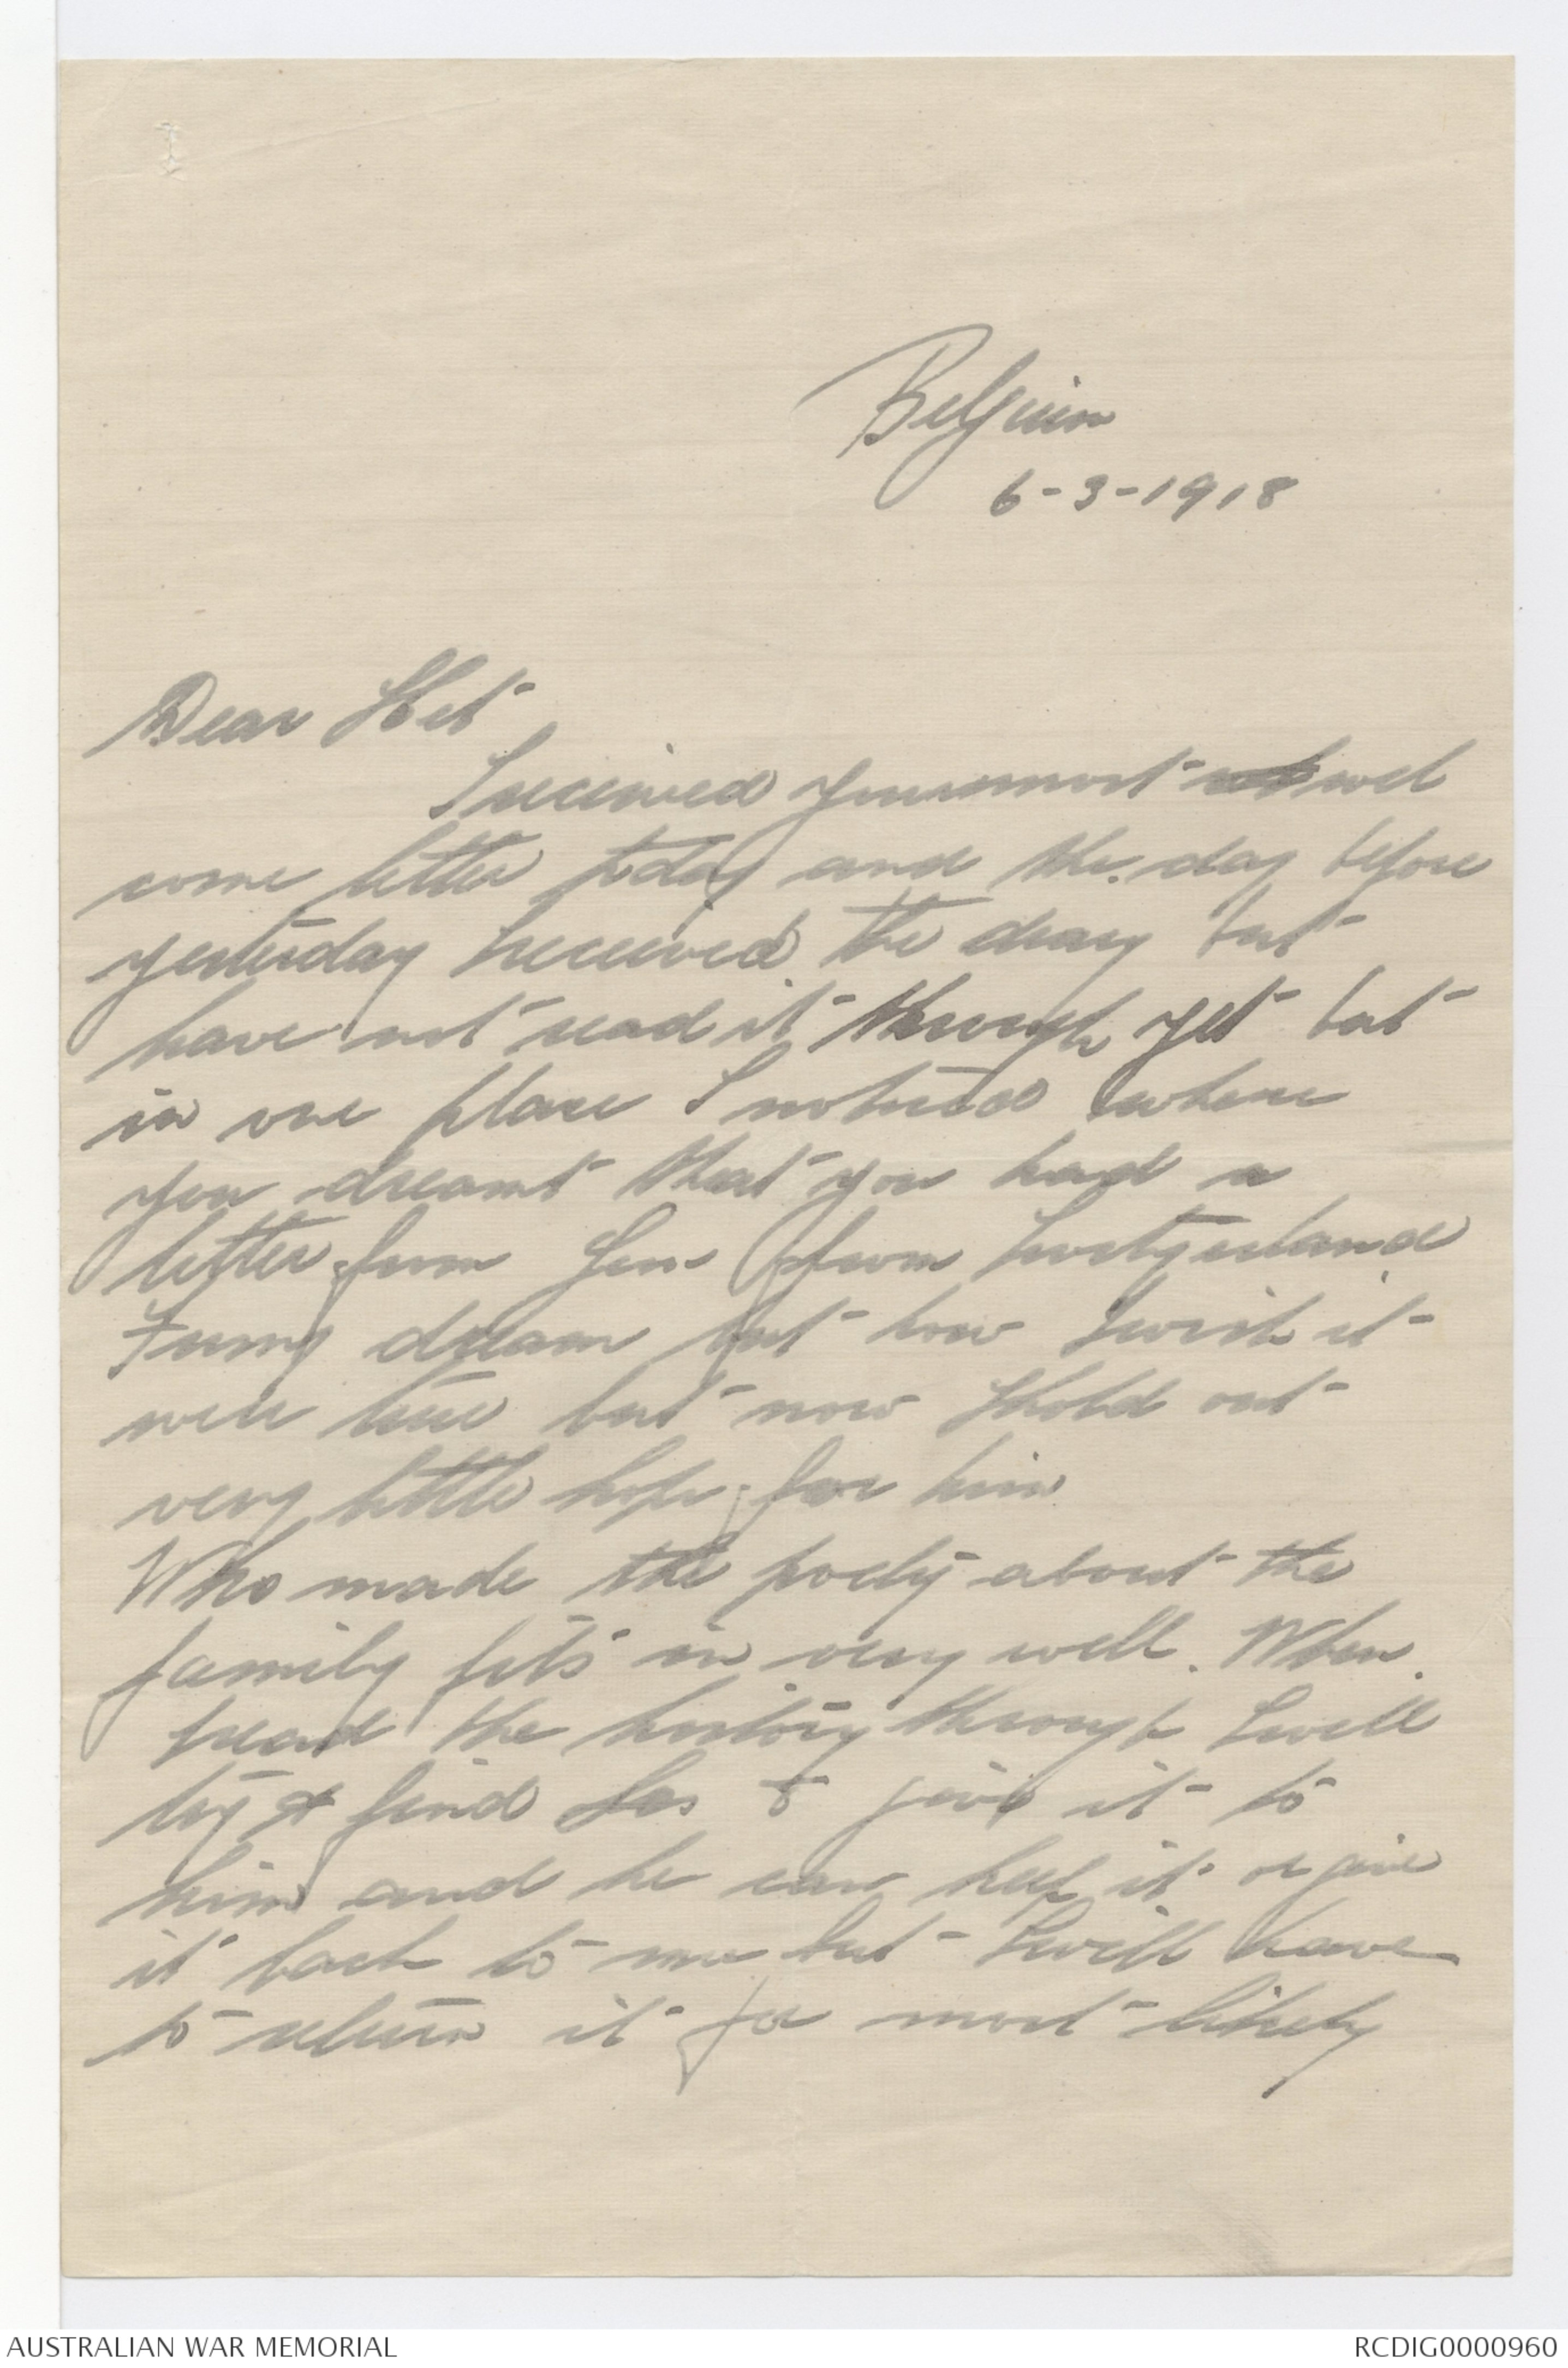 Belgium
6-3-1918
Dear Het
I received your most wel
come letter today and the day before
yesterday I received the diary but
have not read it through yet but
in one place I noticed where
you dreamt that you had a
letter from from Switzerland
Funny dream but how I wish it
were true but now I hold out
very little hope for him
Who made the poety about the
family fits in very well. When
I read the history through I will
try & find Les & give it to
him and he can keep it or give
it back to me but I will have
to return it for most likely
AUSTRALIAN WAR MEMORIAL
RCDIG0000960